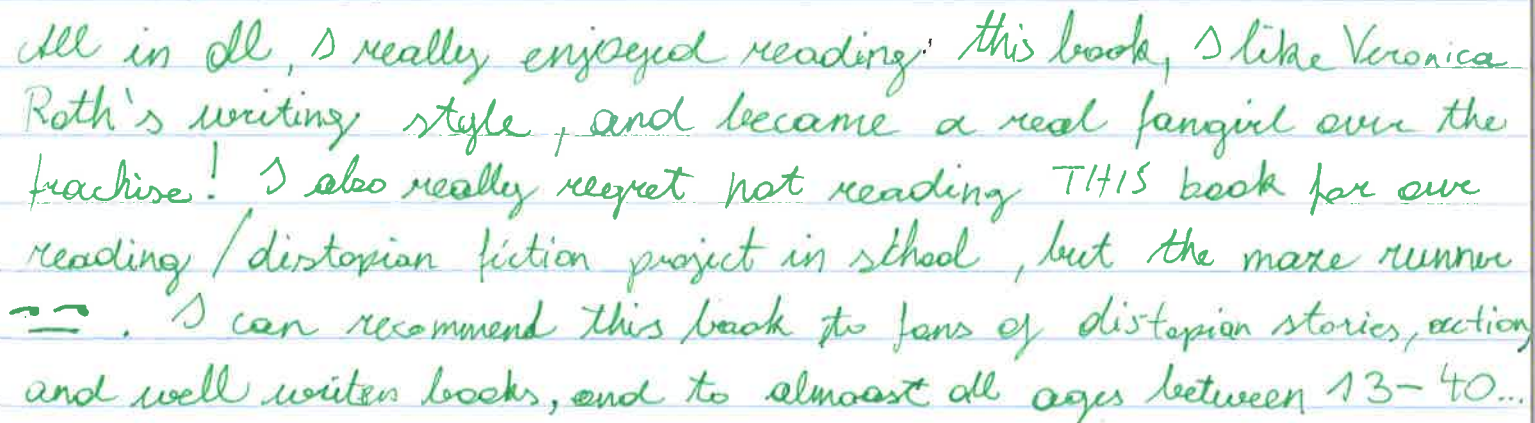 All in all, I really enjoyed reading this book, I like Veronica
Roth's writing style, and became a real fangirl over the
frachise! I also really regret not reading THIS book for our
reading/distopian fiction project in school, but the maze runner
-_-. I can recommend this book to fans of distopian stories, action,
and well writen books, and to almoast all ages between 13-40...